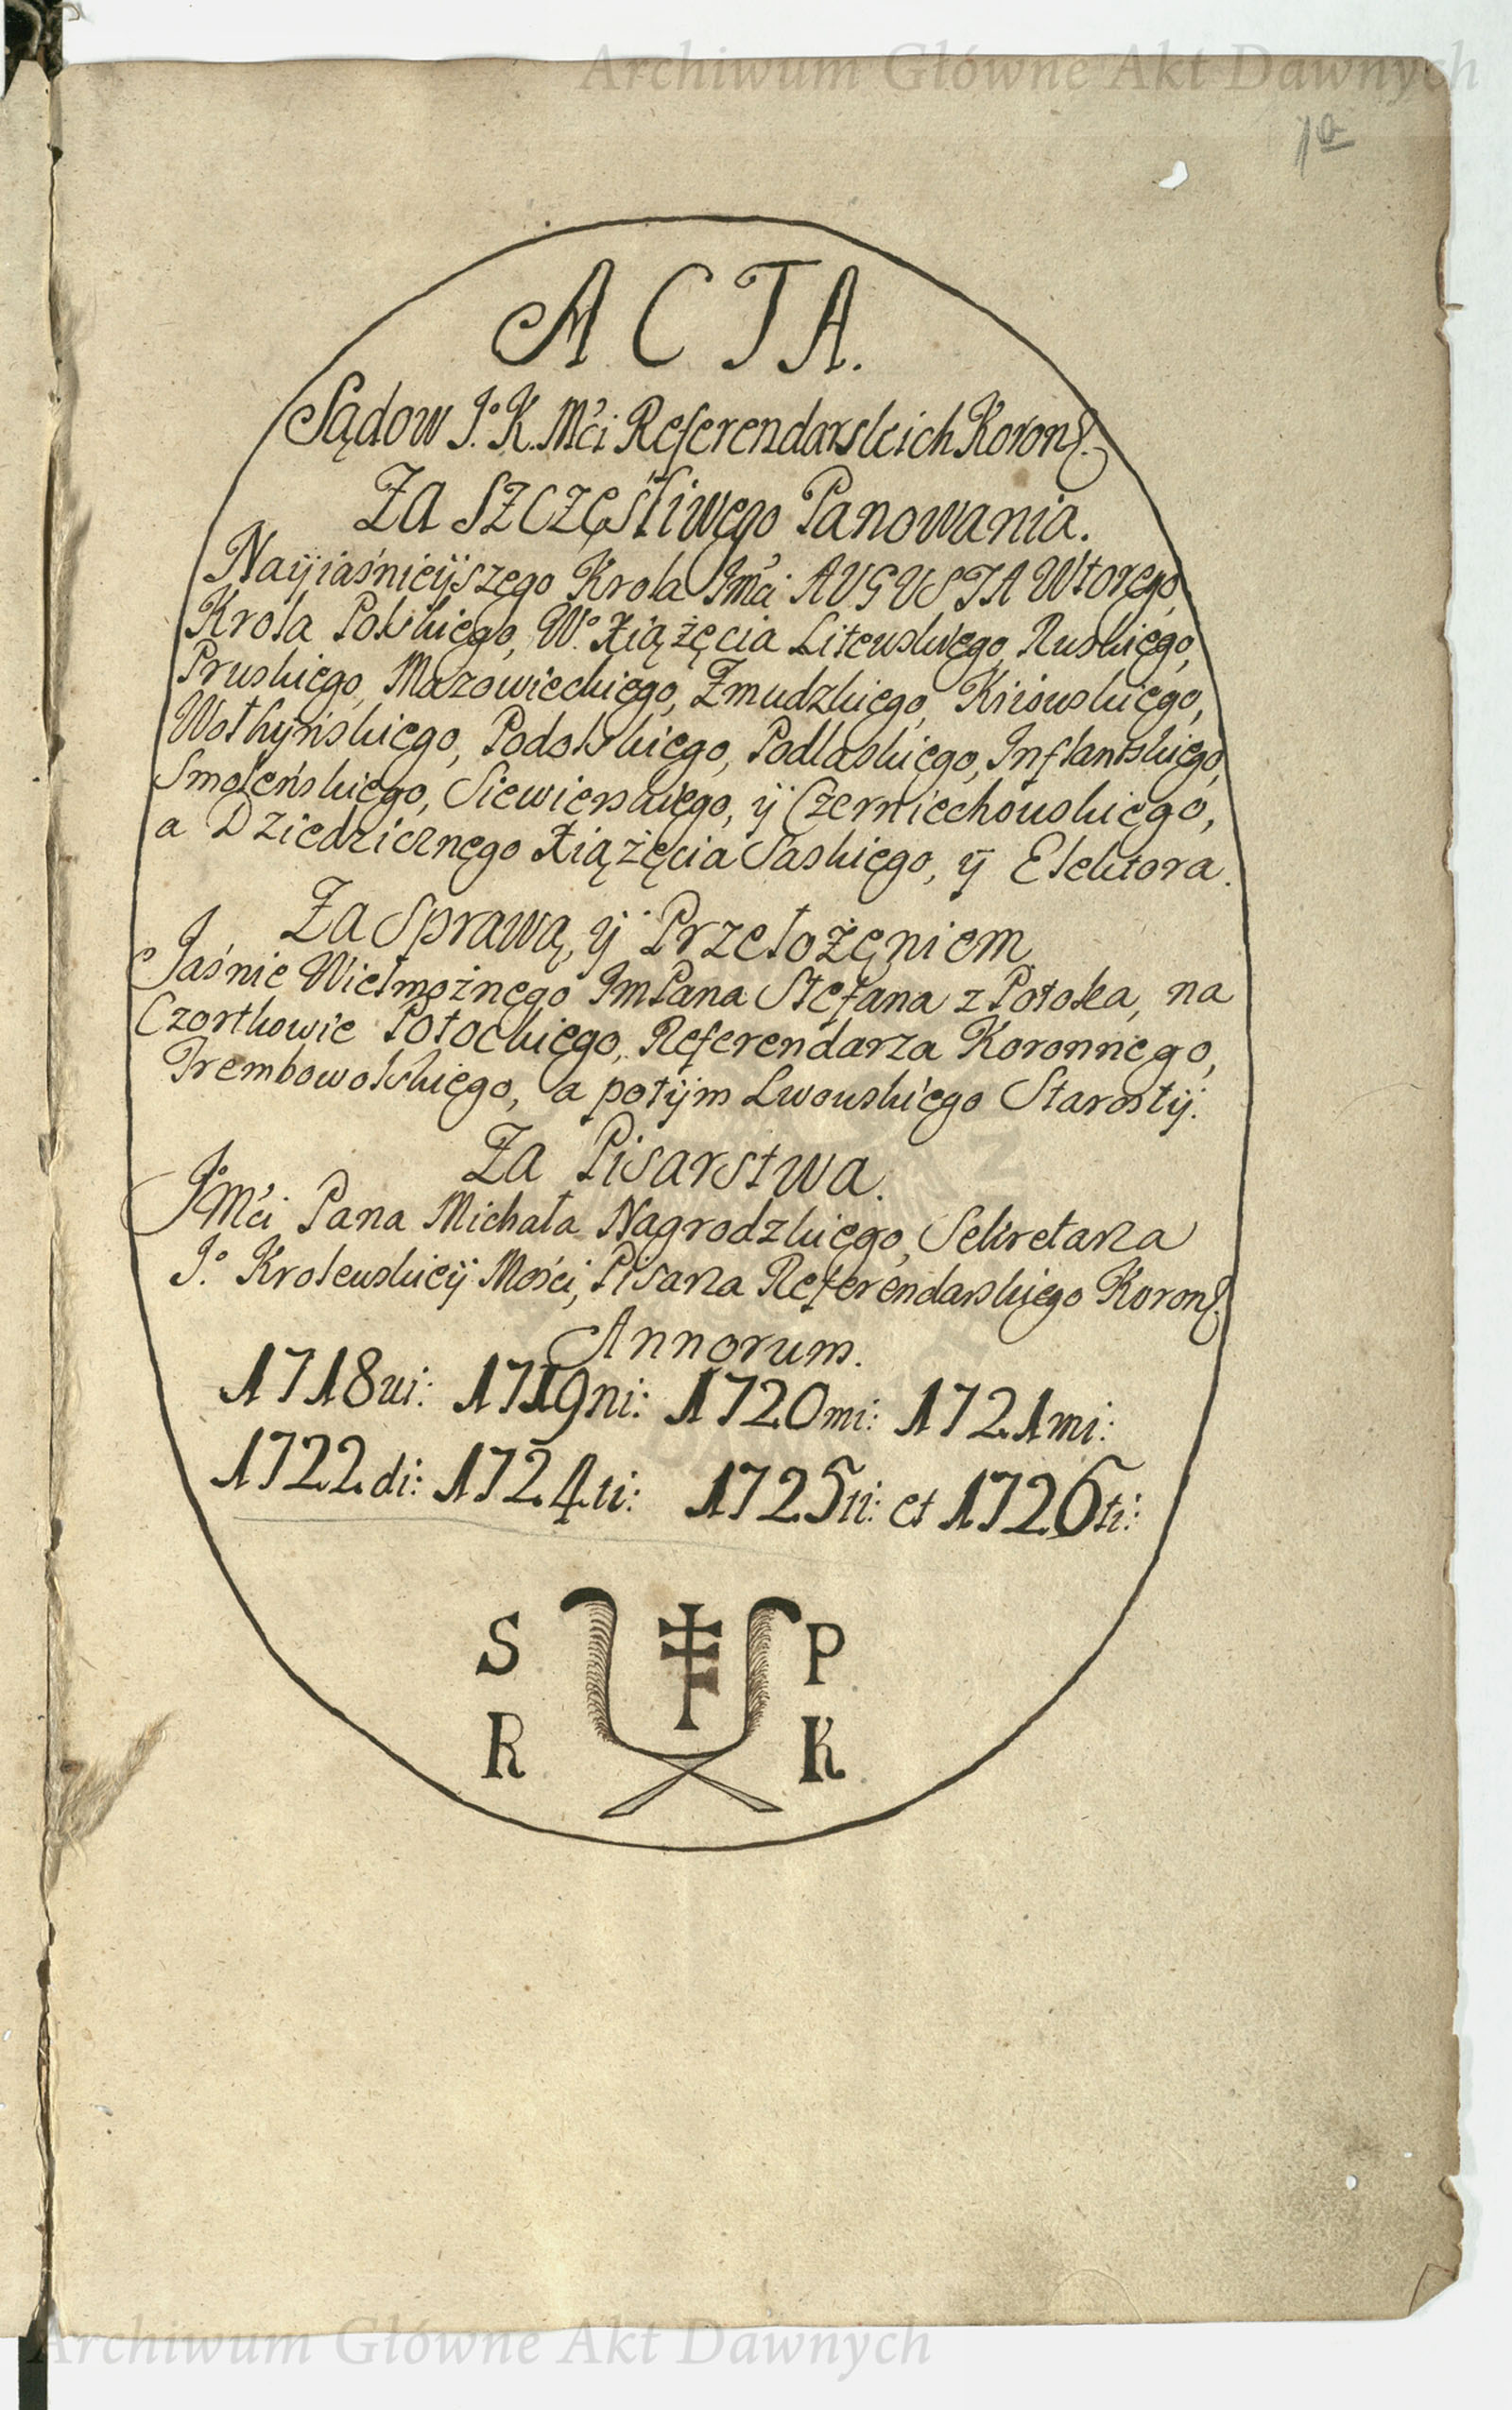 Archiwum Główne Akt Dawnych
1a
ACTA.
Sądow J.º K. Mći Referendarskich Koron.
Za szczęśliwego Panowania.
Nayjaśnieÿszego Krola Jmći AUGUSTA Wtorego,
Krola Polskiego, W.º Xiążęcia Litewskiego, Ruskiego,
Pruskiego, Mazowieckiego, Żmudzkiego, Kiiowskiego,
Wołhyńskiego, Podolskiego, Podlaskiego, Inflantskiego,
Smoleńskiego, Siewierskiego, ÿ Czerniechowskiego,
a Dziedzicznego Xiążęcia Saskiego, ÿ Elektora.
Za sprawą, ÿ Przełożeniem
Jaśnie Wielmożnego JmPana Stefana z Potoka, na
Czortkowie Potockiego, Referendarza Koronnego,
Trembowolskiego, a potÿm Lwowskiego Starostÿ.
Za Pisarstwa.
JºMći Pana Michała Nagrodzkiego, Sekretarza
J.º Krolewskieÿ Mości, Pisarza Referendarskiego Koron.
Annorum.
1718vi: 1719ni: 1720mi: 1721mi:
1722di: 1724ti: 1725ti: et 1726ti:
S P
R K
Archiwum Główne Akt Dawnych